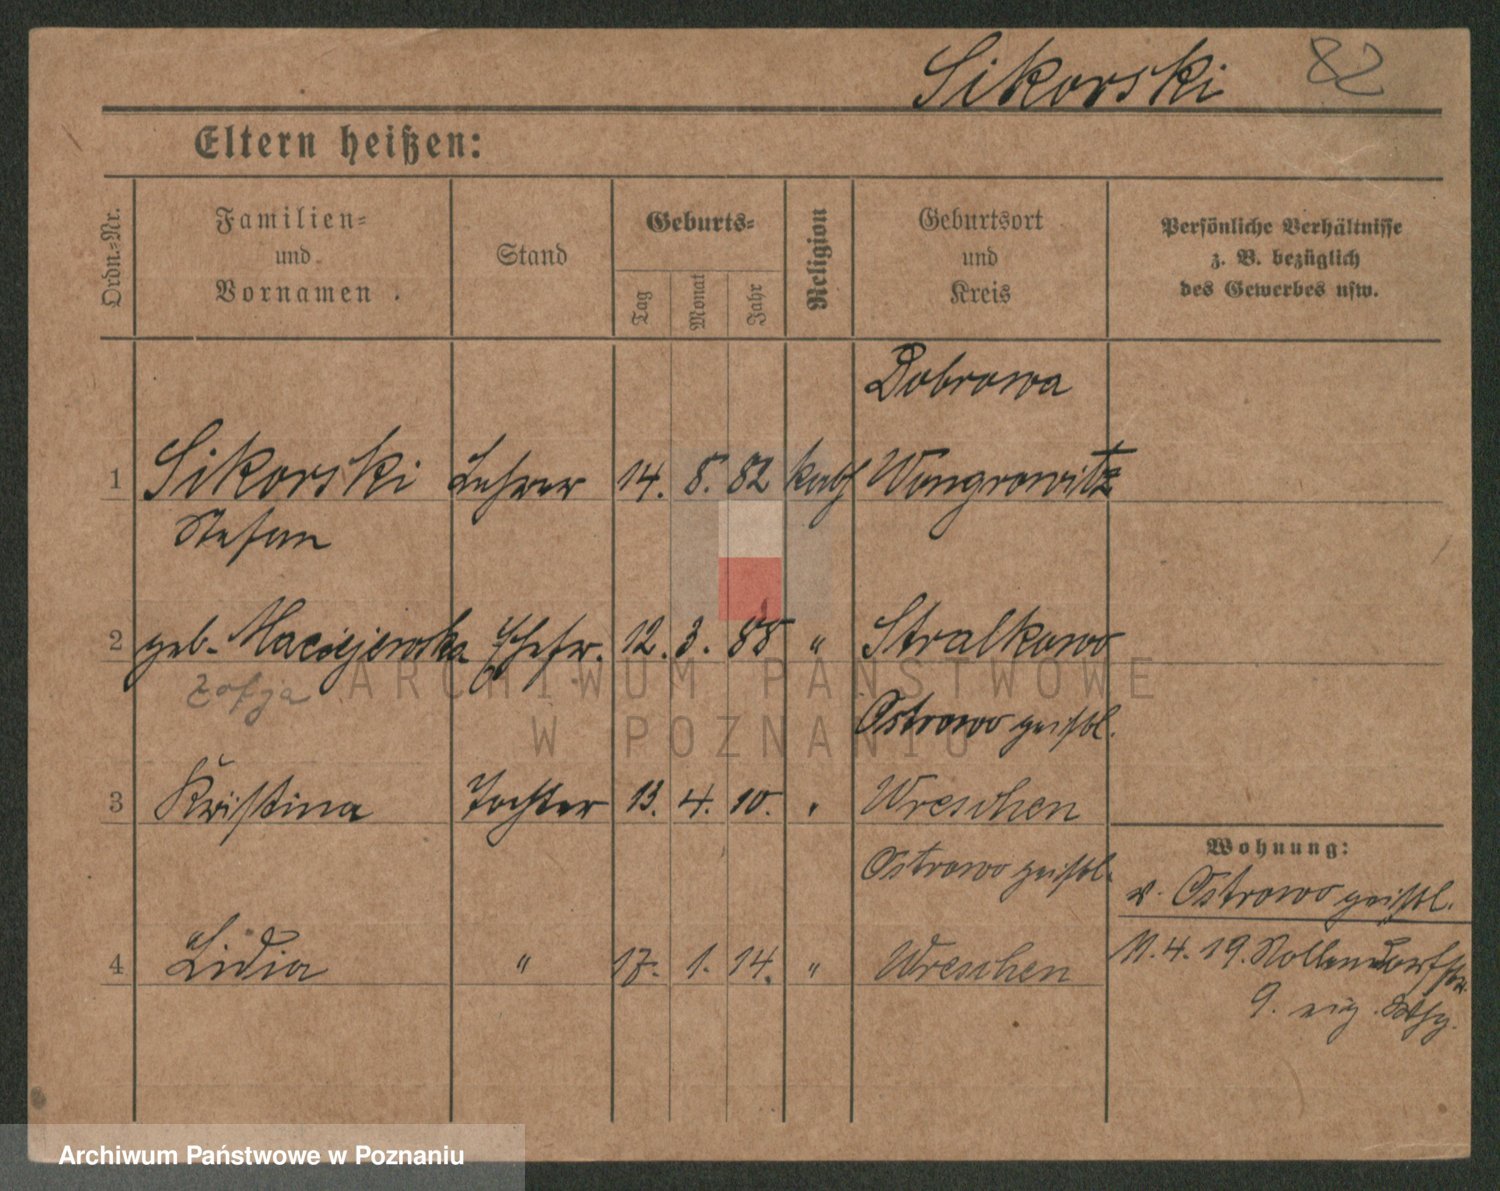 Sikorski 82
Eltern heißen:
Ordn.-Nr.
Familien-
und
Vornamen
Stand
Geburts-
Tag
Monat
Jahr
Religion
Geburtsort
und
Kreis
Persönliche Verhältnisse
z. B. bezüglich
des Gewerbes usw.
Dobrowa
1 Sikorski Lehrer 14. 8. 82 kath Wongrowitz
Stefan
2 geb. Maciejewska Ehefr. 12. 3. 88 " Stralkowo
Zofja
Ostrowo geistl.
3 Kristina Tochter 13. 4. 10. " Wreschen
Wohnung:
Ostrowo geistl.
v. Ostrowo geistl.
4 Lidia " 17. 1. 14. " Wreschen
11. 4. 19. Nollendorfstr.
9. eig. Whg.
ARCHIWUM PAŃSTWOWE
W POZNANIU
Archiwum Państwowe w Poznaniu